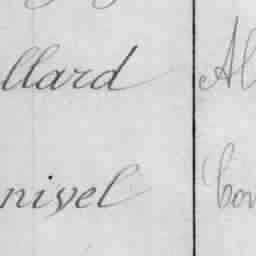 llard Al
nivel Con